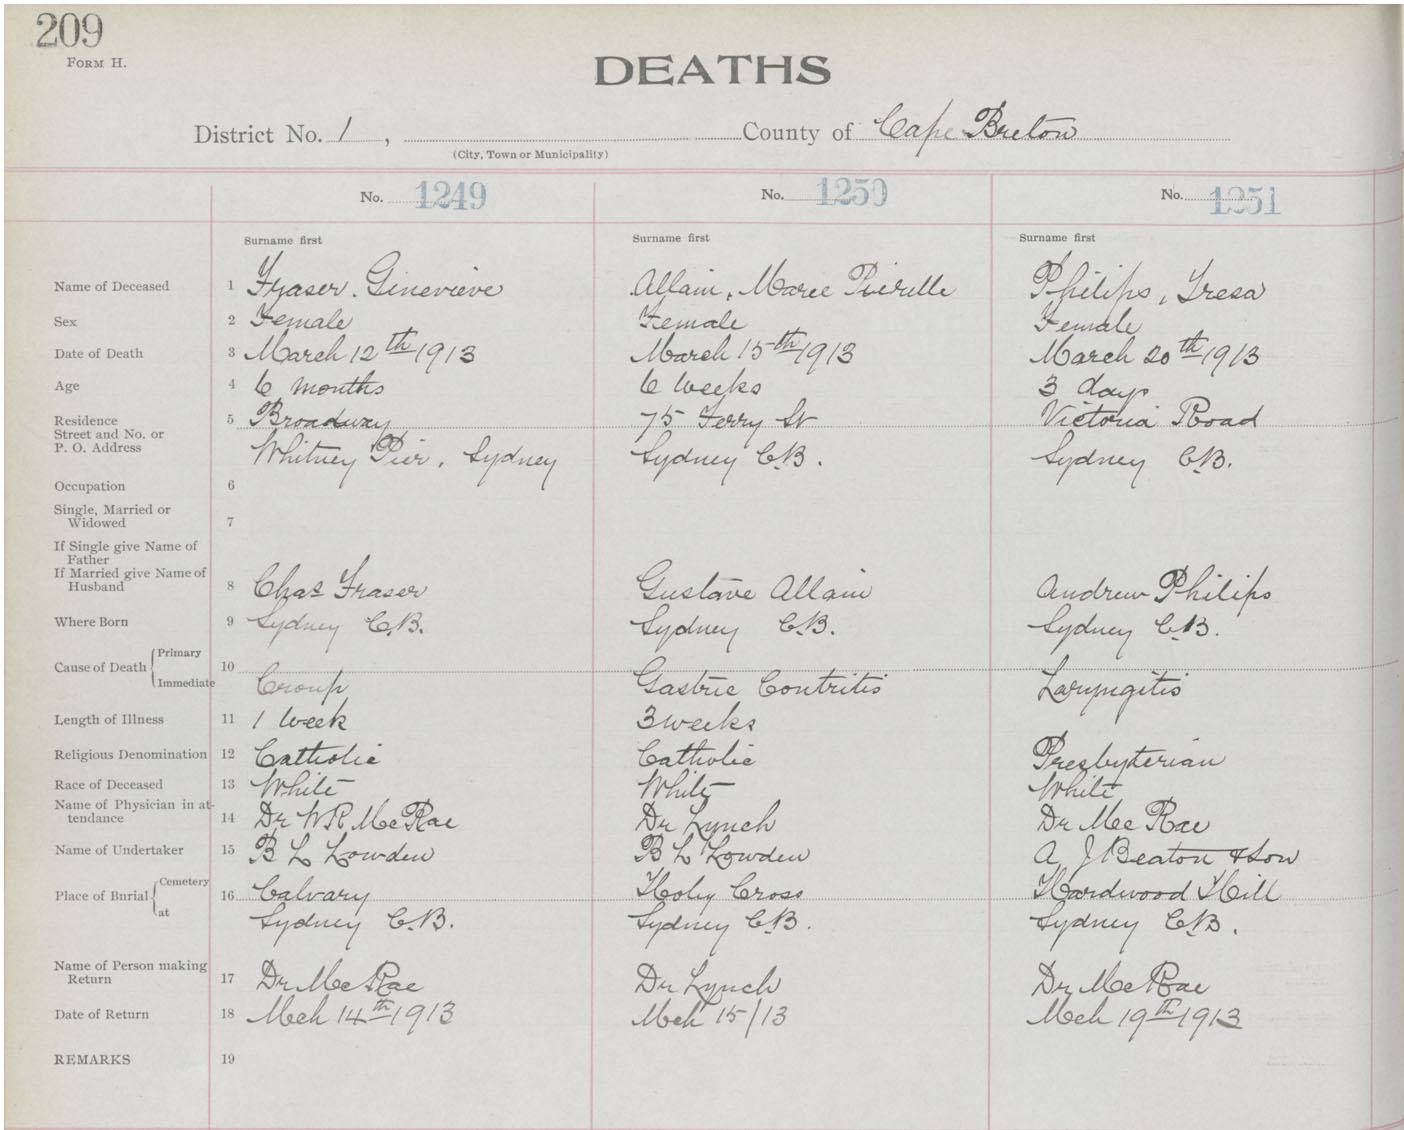 209
FORM H.
DEATHS
District No. 1 , County of Cape Breton
(City, Town or Municipality)
No. 1249 No. 1250 No. 1251
Surname first Surname first Surname first
Name of Deceased 1 Fraser. Ginevieve Allain, Marie Philips, Tresa
Sex 2 Female Female Female
Date of Death 3 March 12th 1913 March 15th 1913 March 20th 1913
Age 4 6 months 6 weeks 3 days
Residence 5 Broadway 75 Ferry St Victoria Road
Street and No. or
P. O. Address Whitney Pier, Sydney Sydney C.B. Sydney C.B.
Occupation 6
Single, Married or
Widowed 7
If Single give Name of
Father
If Married give Name of
Husband 8 Chas Fraser Gustave Allain Andrew Philips
Where Born 9 Sydney C.B. Sydney C.B. Sydney C.B.
Cause of Death { Primary 10
Immediate Croup Gastric Contritis Laryngitis
Length of Illness 11 1 week 3 weeks
Religious Denomination 12 Catholic Catholic Presbyterian
Race of Deceased 13 White White White
Name of Physician in at-
tendance 14 Dr W R McRae Dr Lynch Dr McRae
Name of Undertaker 15 B L Lowden B L Lowden A J Beaton & Son
Place of Burial { Cemetery 16 Calvary Holy Cross Hardwood Hill
at Sydney C.B. Sydney C.B. Sydney C.B.
Name of Person making
Return 17 Dr McRae Dr Lynch Dr McRae
Date of Return 18 Mch 14th 1913 Mch 15/13 Mch 19th 1913
REMARKS 19